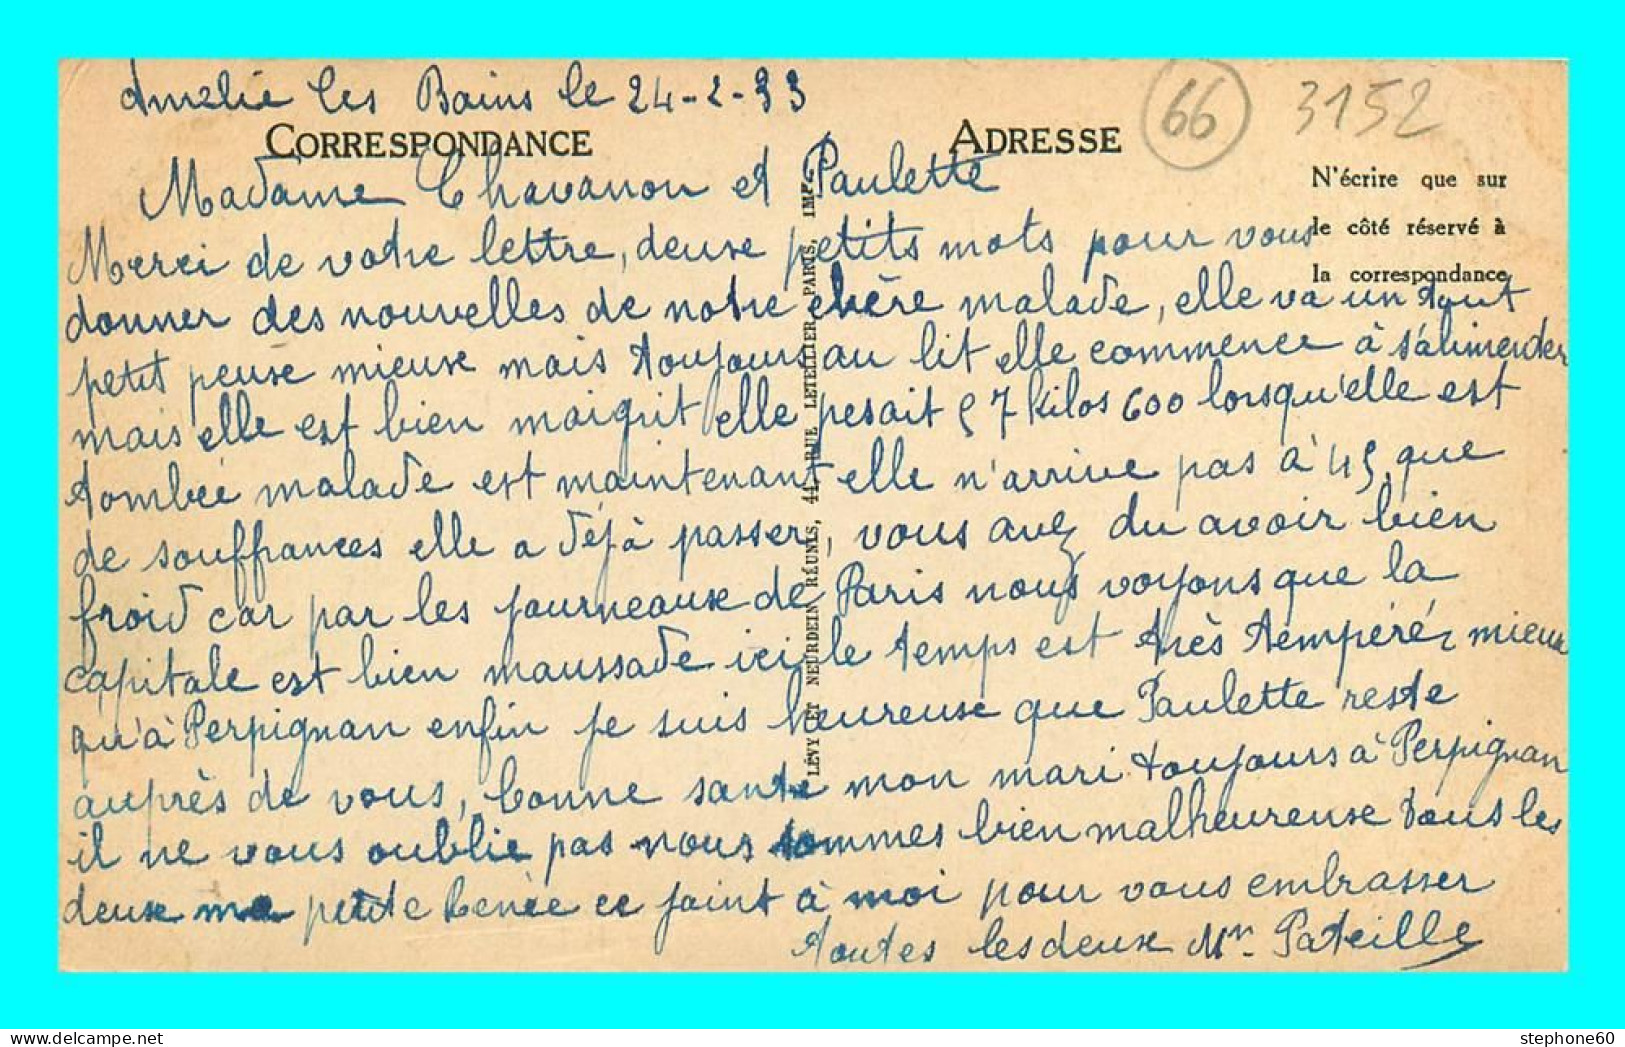 Amélie les Bains le 24-2-33
66
3152
CORRESPONDANCE
ADRESSE
N'écrire que sur
le côté réservé à
la correspondance
Madame Chavanon et Paulette
Merci de votre lettre, deuxe petits mots pour vous
donner des nouvelles de notre chère malade, elle va un tout
petit peuxe mieuxe mais toujours au lit elle commence à s'alimenter
mais elle est bien maigrit elle pesait 57 kilos 600 lorsqu'elle est
tombée malade et maintenant elle n'arrive pas à 45, que
de souffrances elle a déjà passer, vous avez du avoir bien
froid car par les journeauxe de Paris nous voyons que la
capitale est bien maussade ici le temps est très tempéré, mieux
qu'à Perpignan enfin je suis heureuse que Paulette reste
auprès de vous, bonne sante mon mari toujours à Perpignan
il ne vous oublie pas nous sommes bien malheureuxe tous les
deuxe ma petite se joint à moi pour vous embrasser
toutes les deuxe Mm Pateille
LÉVY ET NEURDEIN RÉUNIS, 44, RUE LETELLIER, PARIS, IMP.
stephone60